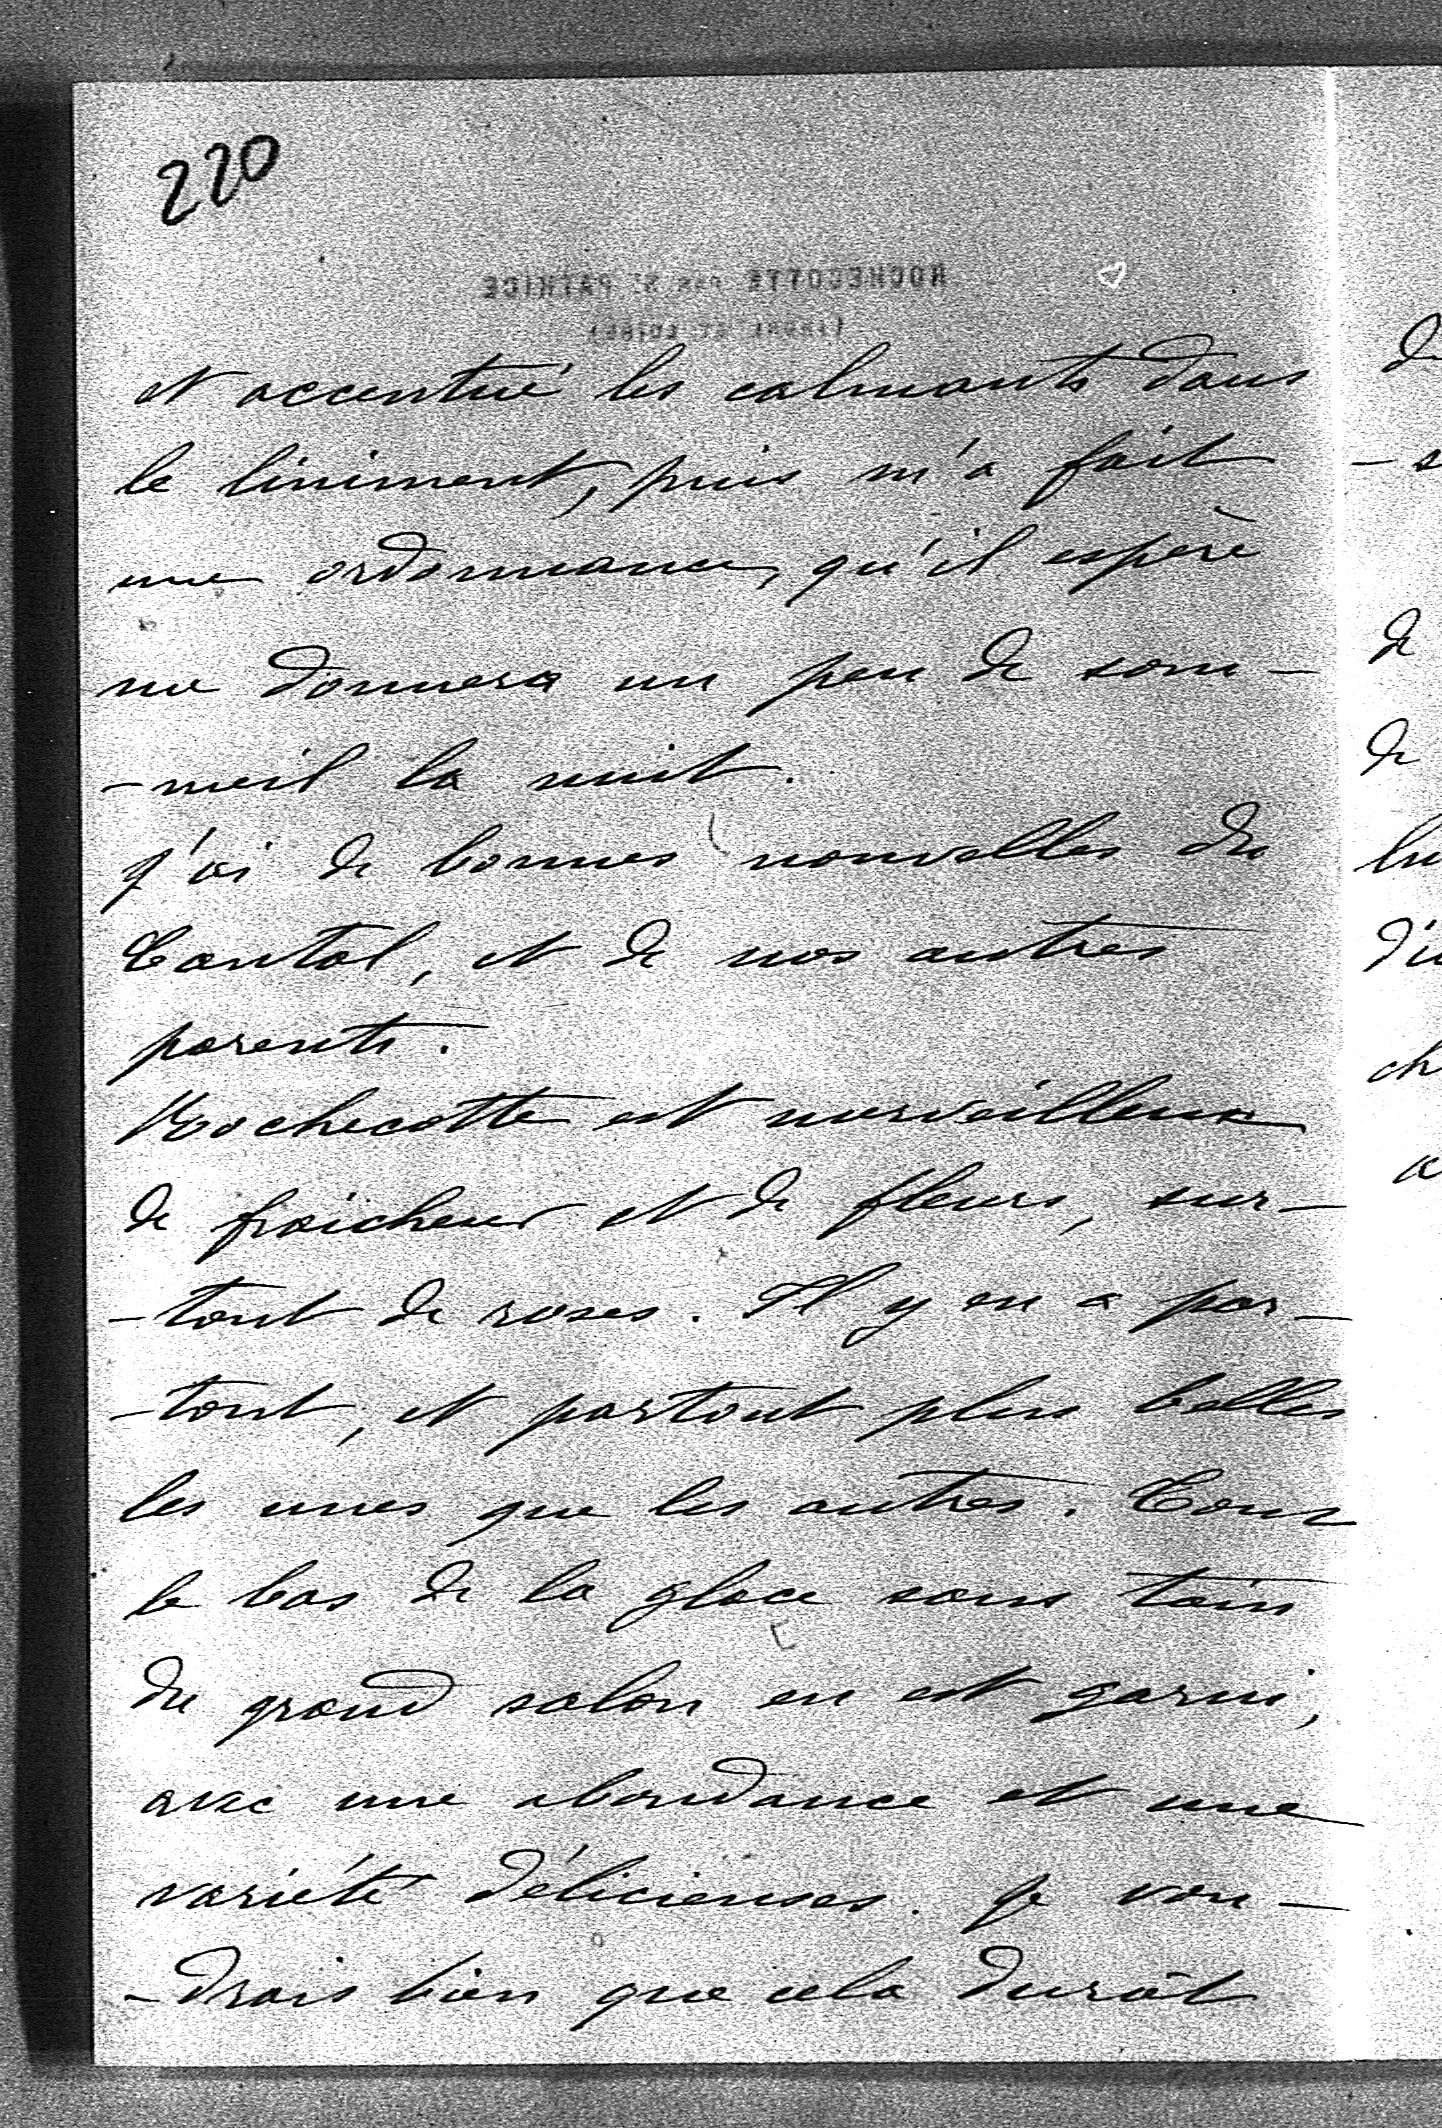 220
ROCHECOTTE PAR ST PATRICE
(INDRE ET LOIRE)
et accentué les calmants dans
le liniment, puis m'a fait
une ordonnance, qu'il espère
me donnera un peu de som-
-meil la nuit.
J'ai de bonnes nouvelles du
Cantal, et de nos autres
parents.
Rochecotte est merveilleux
de fraîcheur et de fleurs, sur-
-tout de roses. Il y en a par-
-tout, et partout plus belles
les unes que les autres. Tout
le bas de la glace sans tain
du grand salon en est garni,
avec une abondance et une
variété délicieuses. Je vou-
-drais bien que cela durât